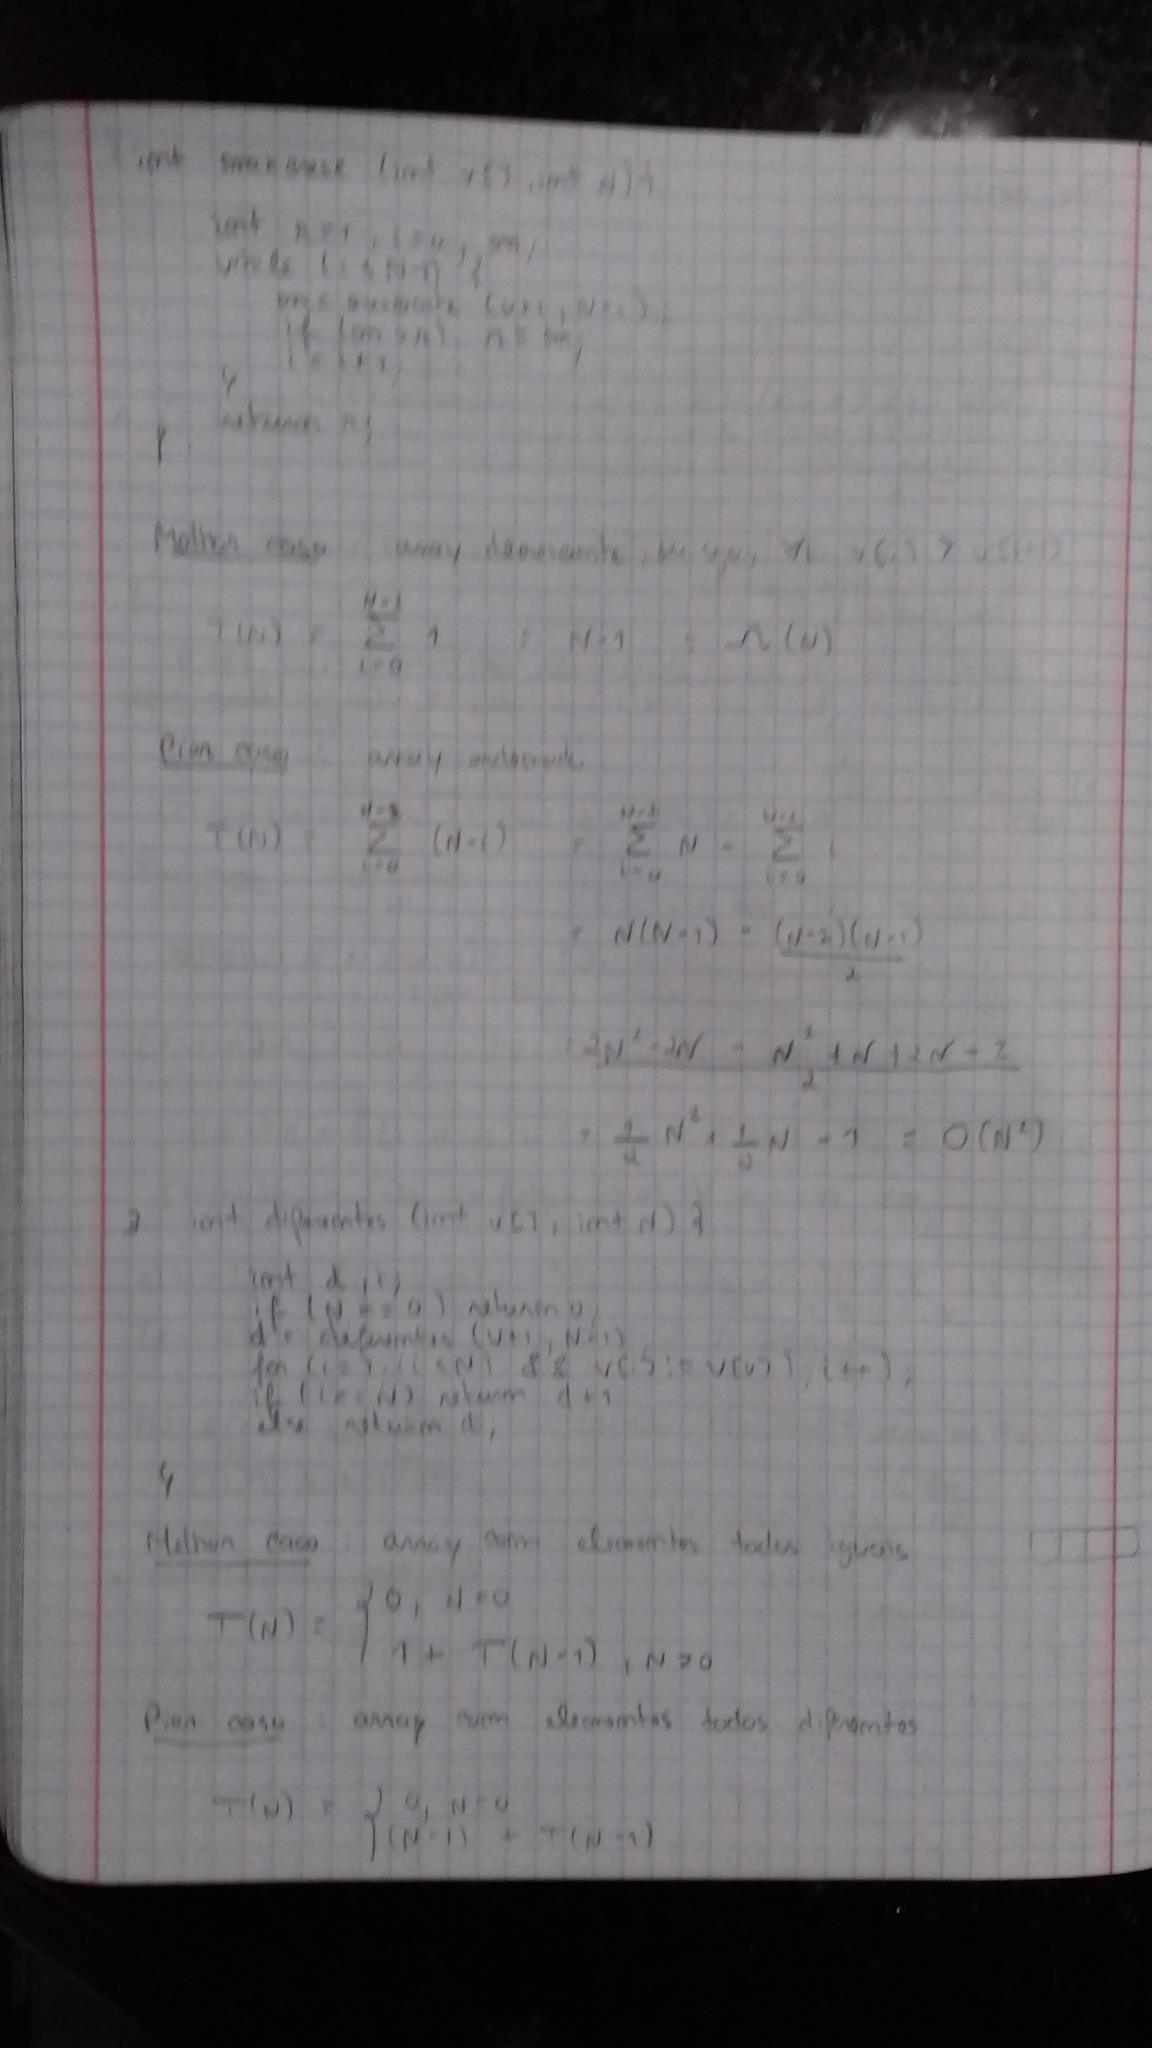 int maxcresc (int v[], int N) {
int r=1, i=0, m;
while (i < N-1) {
m = cresce (v+i, N-i);
if (m > r) r = m;
i = i+1;
}
return r;
}
Melhor caso : array decrescente, ∀i v[i] > v[i+1]
T(N) = ∑ 1 = N-1 = Ω(N)
Pior caso : array ordenado
T(N) = ∑ (N-i) = ∑ N - ∑ i
= N(N-1) - (N-2)(N-1) / 2
= 2N² - 2N - N² + N + 2N - 2 / 2
= 1/2 N² + 1/2 N - 1 = O(N²)
int diferentes (int v[], int N) {
int d, i;
if (N == 0) return 0;
d = diferentes (v+1, N-1)
for (i=1; (i<N) && v[i] != v[0]; i++);
if (i == N) return d+1
else return d;
}
Melhor caso : array com elementos todos iguais
T(N) = { 0, N=0
1 + T(N-1), N>0
Pior caso : array com elementos todos diferentes
T(N) = { 0, N=0
(N-1) + T(N-1)